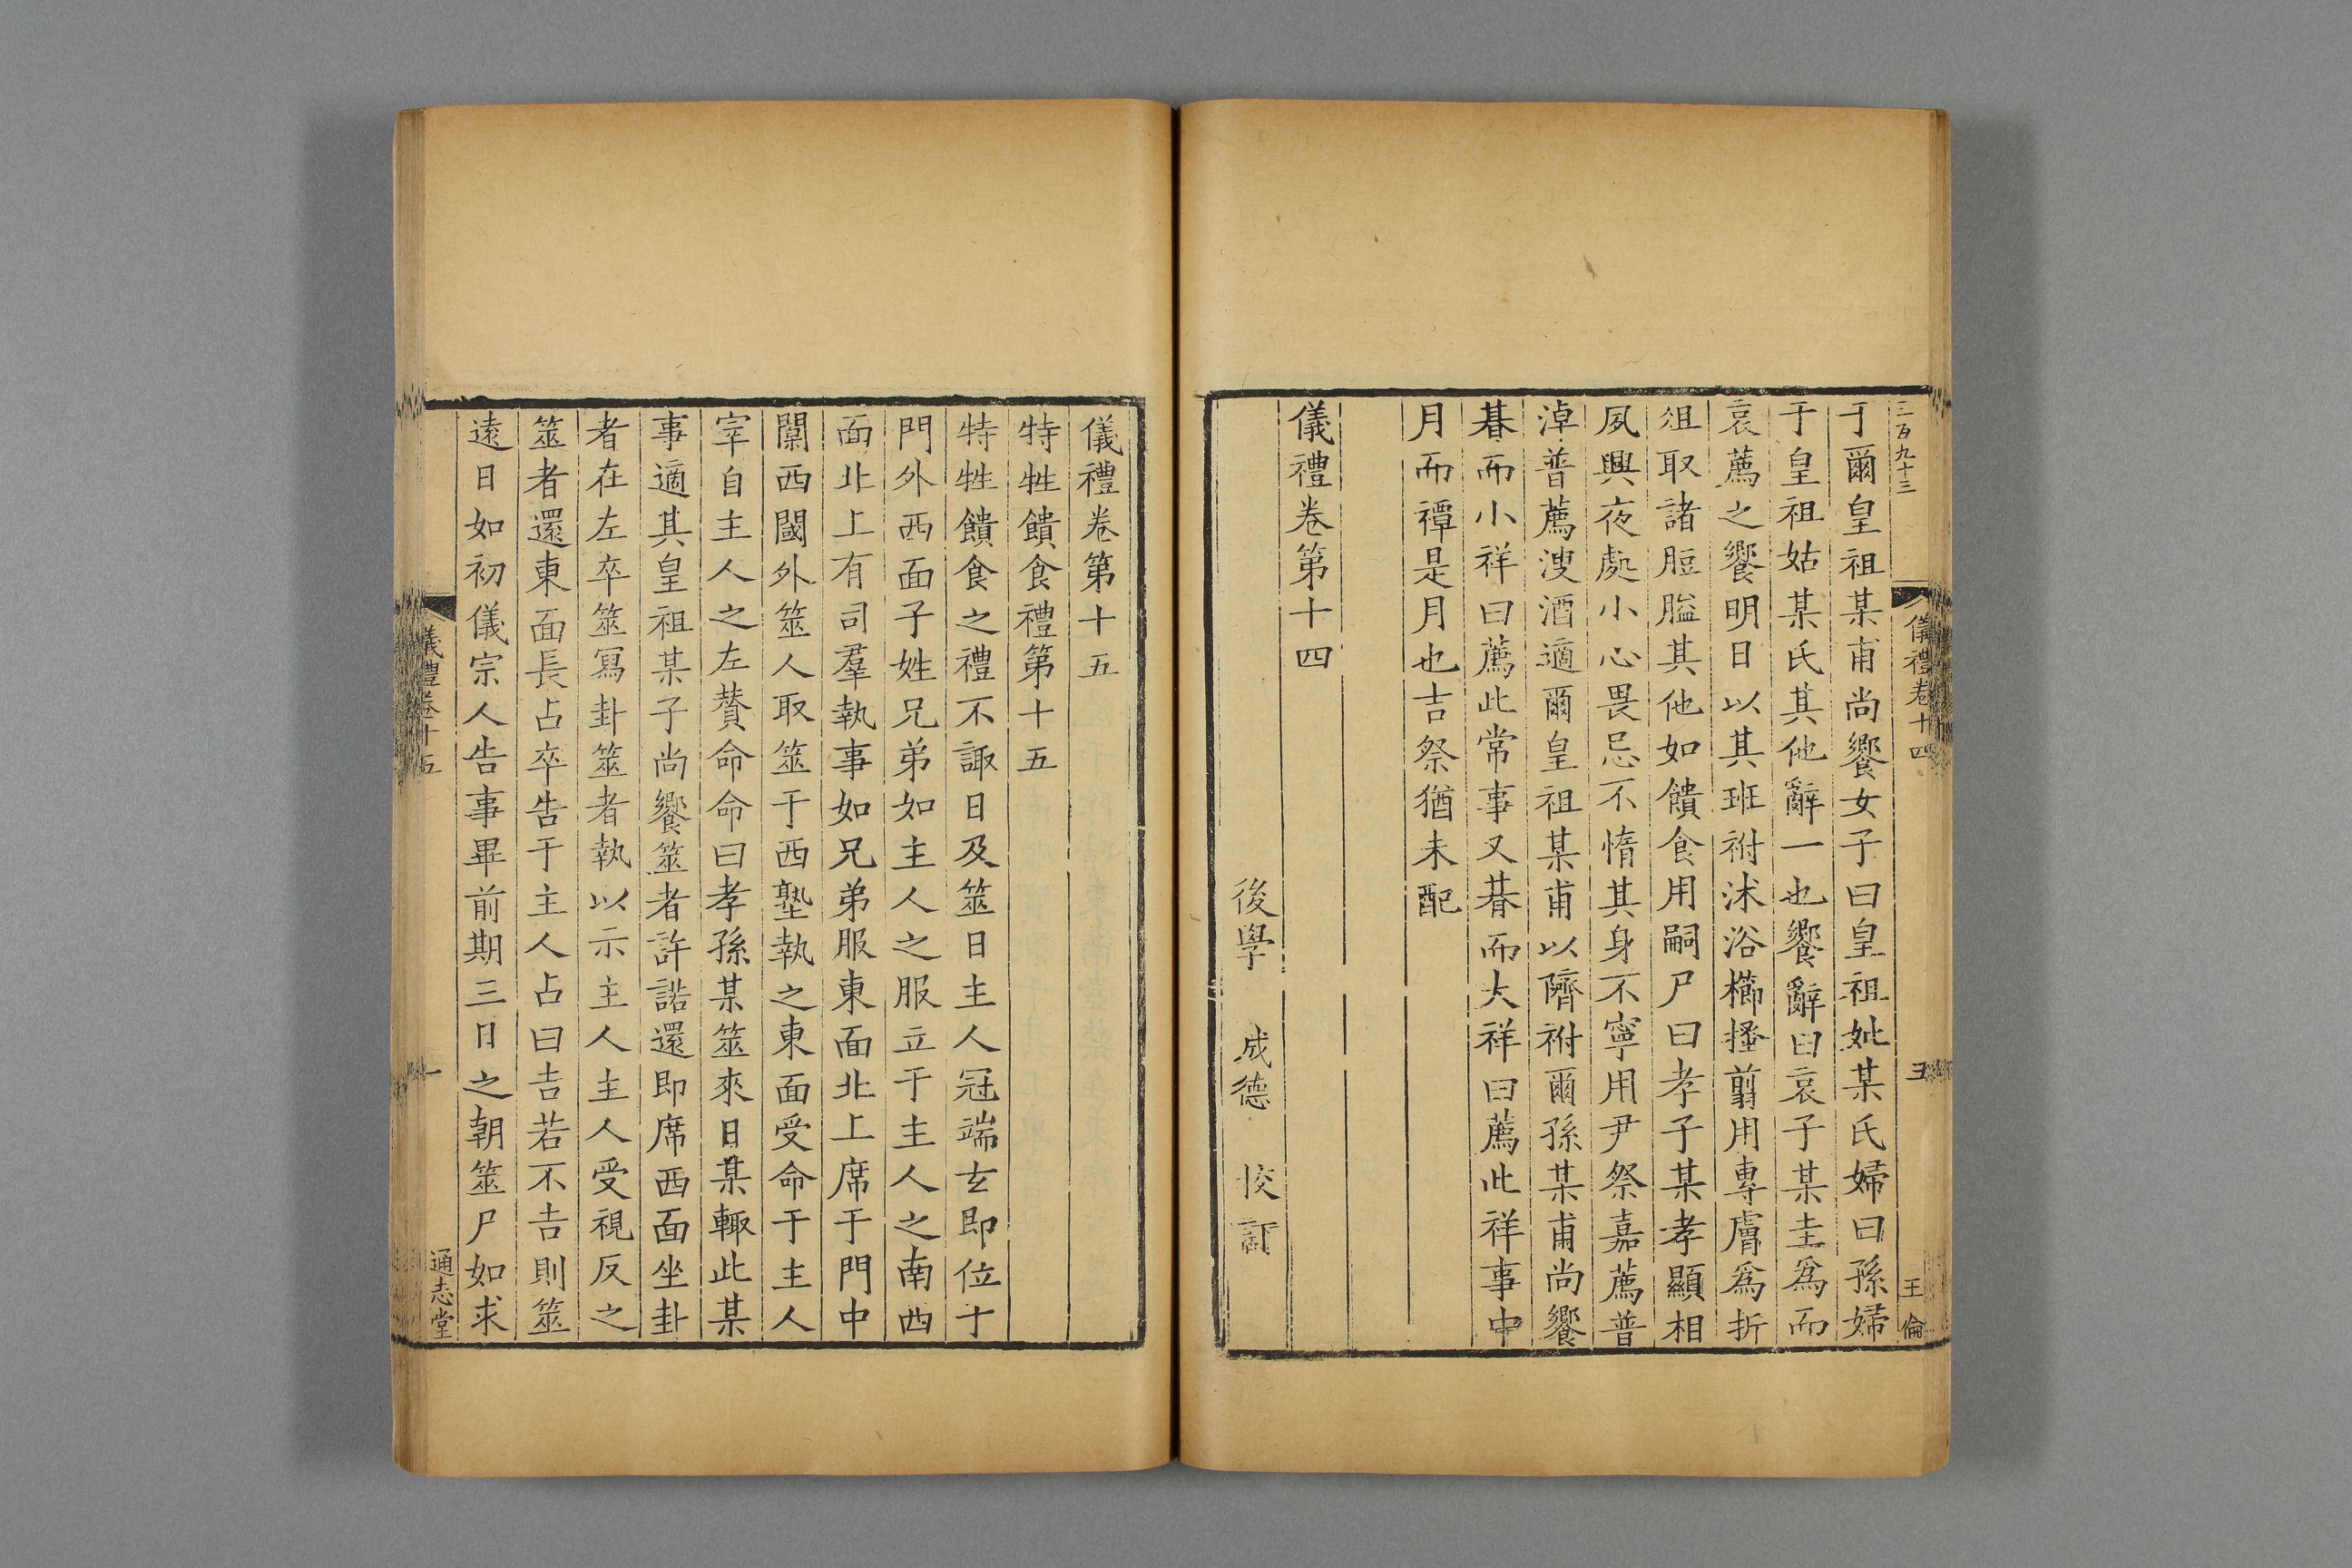 三百九十三
儀禮卷十四
五
王倫
于爾皇祖某甫尚饗女子曰皇祖妣某氏婦曰孫婦
于皇祖姑某氏其他辭一也饗辭曰哀子某圭爲而
哀薦之饗明日以其班祔沐浴櫛搔翦用專膚爲折
俎取諸脰膉其他如饋食用嗣尸曰孝子某孝顯相
夙興夜處小心畏忌不惰其身不寧用尹祭嘉薦普
淖普薦溲酒適爾皇祖某甫以隮祔爾孫某甫尚饗
朞而小祥曰薦此常事又朞而大祥曰薦此祥事中
月而禫是月也吉祭猶未配
儀禮卷第十四
後學 成德 挍訂
儀禮卷第十五
特牲饋食禮第十五
特牲饋食之禮不諏日及筮日主人冠端玄即位于
門外西面子姓兄弟如主人之服立于主人之南西
面北上有司羣執事如兄弟服東面北上席于門中
闑西閾外筮人取筮于西塾執之東面受命于主人
宰自主人之左贊命命曰孝孫某筮來日某諏此某
事適其皇祖某子尚饗筮者許諾還即席西面坐卦
者在左卒筮冩卦筮者執以示主人主人受視反之
筮者還東面長占卒告于主人占曰吉若不吉則筮
逺日如初儀宗人告事畢前期三日之朝筮尸如求
儀禮卷十五
一
通志堂